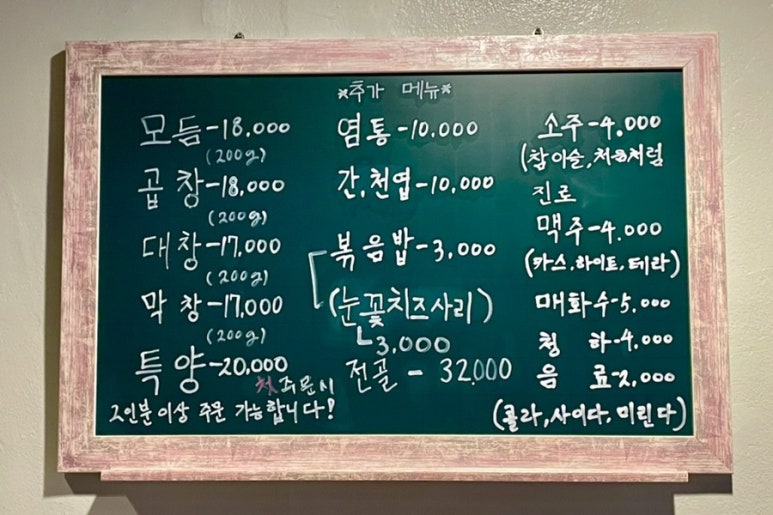 모듬-18,000
(200g)
곱창-18,000
(200g)
대창-17,000
(200g)
막창-17,000
(200g)
특양-20,000
첫 주문시
2인분 이상 주문 가능합니다!
*추가 메뉴*
염통-10,000
간,천엽-10,000
볶음밥-3,000
(눈꽃치즈사리)
3,000
전골-32,000
소주-4,000
(참이슬,처음처럼
진로
맥주-4,000
(카스,하이트,테라)
매화수-5,000
청하-4,000
음료-2,000
(콜라,사이다,미린다)